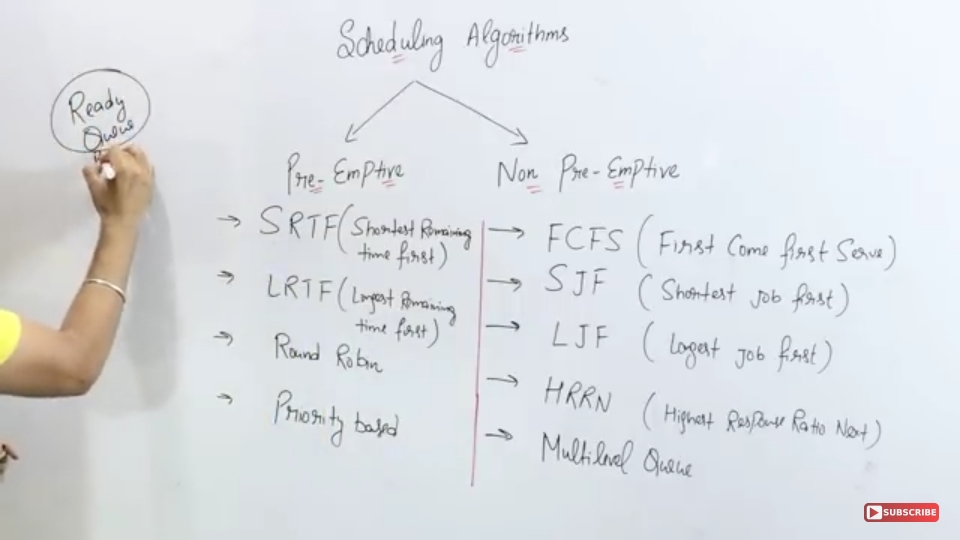 Scheduling Algorithms
Ready
Queue
Pre-Emptive
Non Pre-Emptive
→ SRTF (Shortest Remaining
time first)
→ LRTF (Longest Remaining
time first)
→ Round Robin
→ Priority based
→ FCFS (First Come first Serve)
→ SJF (Shortest Job first)
→ LJF (Longest Job first)
→ HRRN (Highest Response Ratio Next)
→ Multilevel Queue
SUBSCRIBE